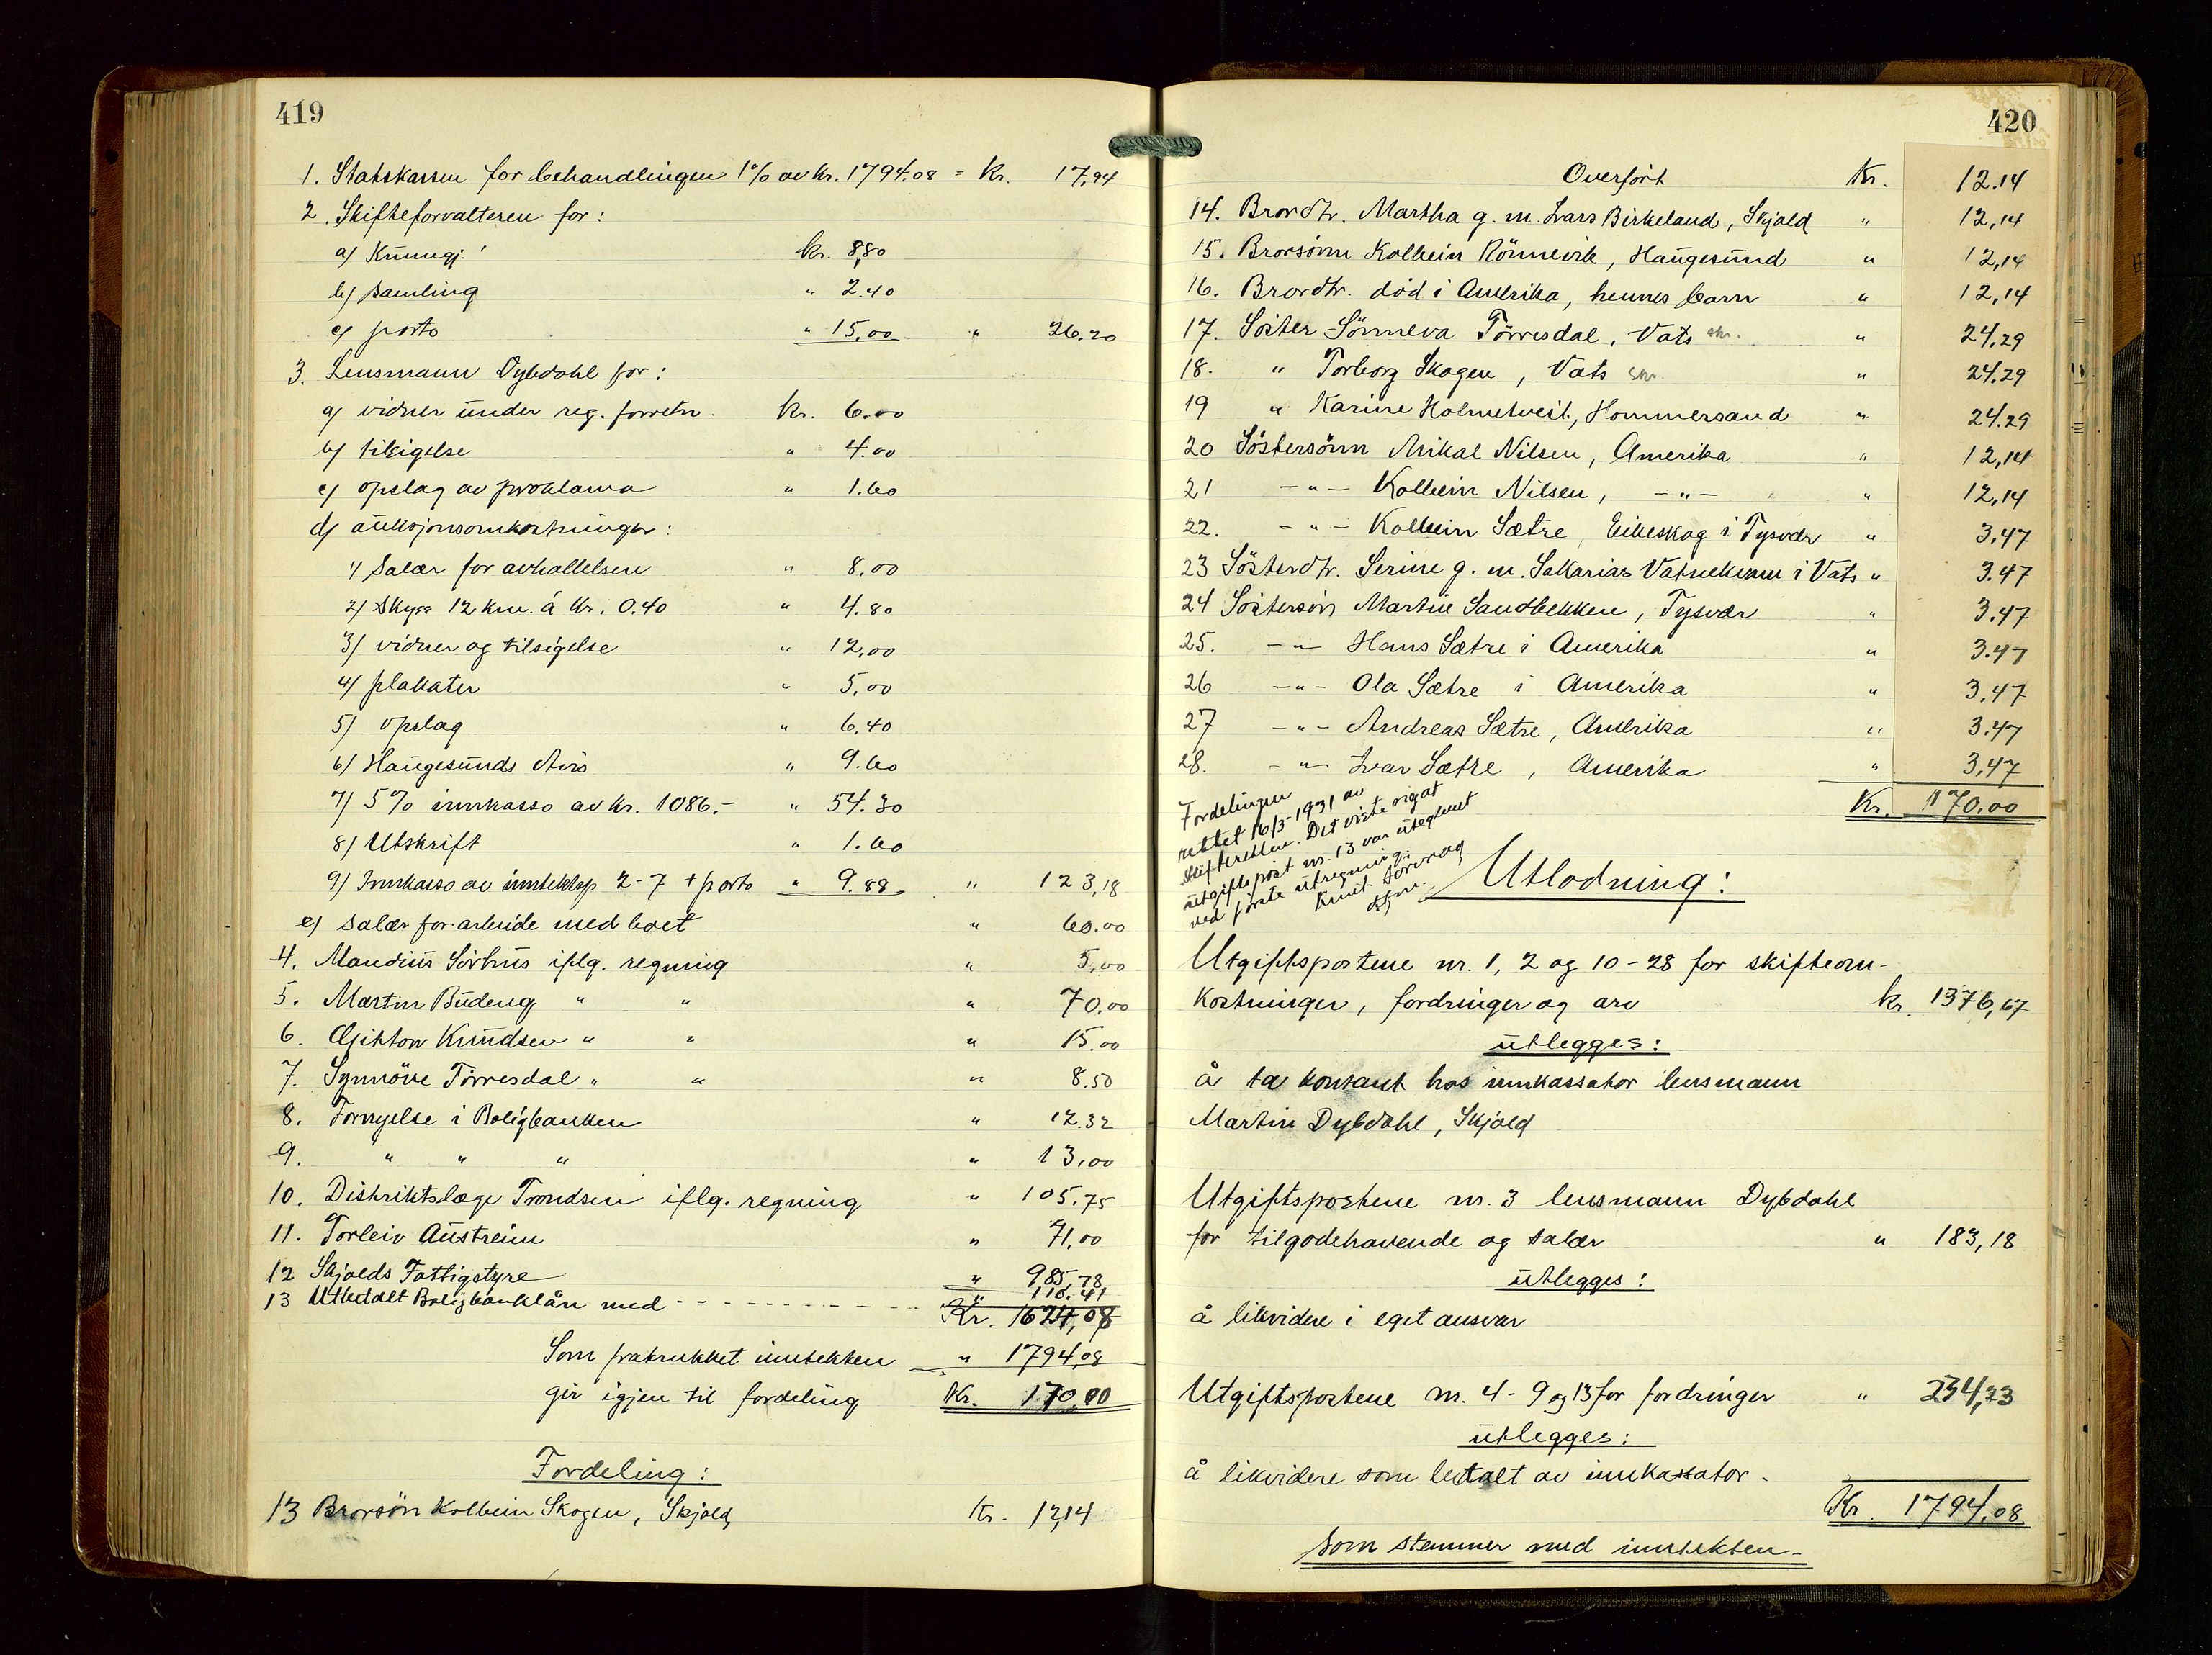 419
1. Statskassen for behandlingen 1% av kr. 1794.08 = Kr. 17,94
2. Skifteforvalteren for:
a) Kunngj. kr. 8,80
b) samling " 2.40
c) porto " 15,00 " 26.20
3. Lensmann Dybdahl for:
a) vidner under reg. forretn. kr. 6.00
b) tilsigelse " 4.00
c) opslag av proklama " 1.60
d) auksjonsomkostninger:
1) Salær for avhollelsen " 8.00
2) Skyss 12 km. á kr. 0.40 " 4.80
3) vidner og tilsigelse " 12,00
4) plakater " 5,00
5) opslag " 6.40
6) Haugesunds Avis " 9.60
7) 5% innkasso av kr. 1086.- " 54.30
8) Utskrift " 1.60
9) Innkasso av inntektsp 2-7 + porto " 9.88 " 123,18
e) salær for arbeide med boet " 60.00
4. Maudius Sörhus iflg. regning " 5,00
5. Martin Budeng " " " 70.00
6. Gitton Knudsen " " " 15.00
7. Synnöve Törresdal " " " 8.50
8. Fornyelse i Boligbanken " 12.32
9. " " " " 13,00
10. Distriktslæge Trondsen iflg. regning " 105.75
11. Torleiv Austreim " 71,00
12 Skjolds Fattigstyre " 985,78
13 Utbetalt Boligbanklån med - - - - - - - - " 110.41
Kr. 1624,08
Som fratrukket inntekten " 1794,08
gir igjen til fordeling Kr. 170,00
Fordeling:
13 Brorsön Kolbein Skogen, Skjold, Kr. 12,14
420
Overfört Kr. 12.14
14. Brordtr. Martha g. m. Lars Birkeland, Skjold " 12,14
15. Brorsönn Kolbein Rönnevik, Haugesund " 12,14
16. Brordtr. död i Amerika, hennes barn " 12,14
17. Söster Sönneva Törresdal, Vats skr. " 24,29
18. " Torborg Skogen, Vats skr. " 24.29
19 " Karine Holmetveit, Hommersand " 24.29
20 Söstersönn Mikal Nilsen, Amerika " 12,14
21 - " - Kolbein Nilsen, - " - " 12,14
22. - " - Kolbein Sætre, Eikeskog i Tysvær " 3.47
23 Sösterdtr. Serine g. m. Sakarias Vatnekvam i Vats " 3.47
24 Söstersön Martin Sandbekken, Tysvær " 3.47
25. - " - Hans Sætre i Amerika " 3.47
26 - " - Ola Sætre i Amerika " 3,47
27 - " - Andreas Sætre, Amerika " 3.47
28. - " - Ivar Sætre, Amerika " 3,47
Kr. 170,00
Fordelingen
rettet 16/3-1931 av
skifteretten. Det viste sig at
utgiftspost nr. 13 var uteglemt
ved förste utregning.
Knut Sörvaag
Utlodning:
Utgiftspostene nr. 1, 2 og 10-28 for skifteom-
kostninger, fordringer og arv kr. 1376,67
utlegges:
å ta kontant hos innkassator lensmann
Martin Dybdahl, Skjold
Utgiftspostene nr. 3 lensmann Dybdahl
for tilgodehavende og salær " 183,18
utlegges:
å likvidere i eget ansvar
Utgiftspostene nr. 4-9 og 13 for fordringer " 234,23
utlegges:
å likvidere som betalt av innkassator.
Kr. 1794,08
Som stemmer med inntekten-